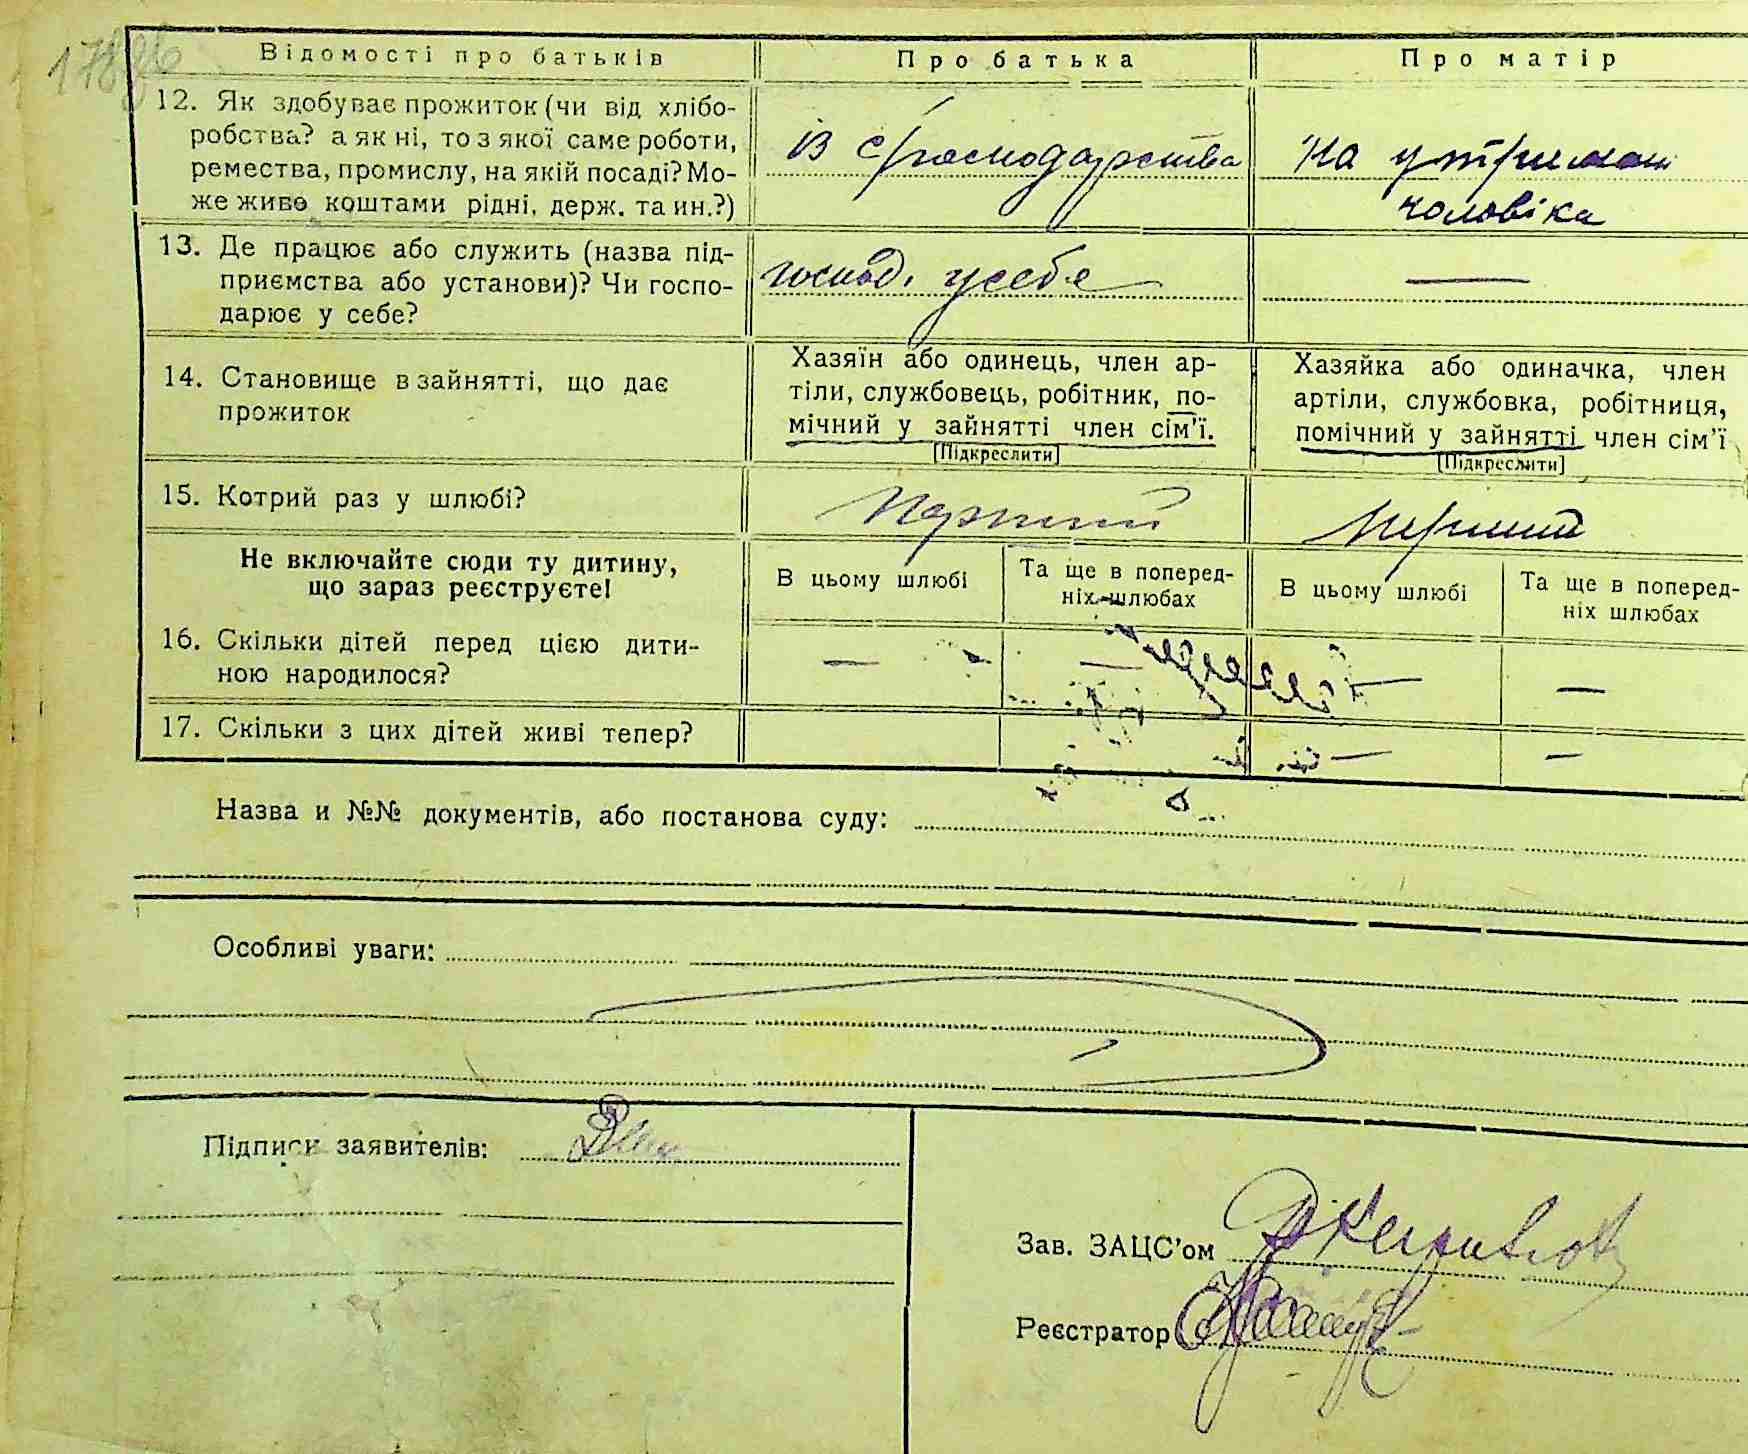 Відомості про батьків
Про батька
Про матір
12. Як здобуває прожиток (чи від хлібо-
робства? а як ні, то з якої саме роботи,
ремества, промислу, на якій посаді? Мо-
же живе коштами рідні, держ. та ин.?)
із с/господарства
на утриман
чоловіка
13. Де працює або служить (назва під-
приємства або установи)? Чи госпо-
дарює у себе?
господ. у себе
—
14. Становище в зайнятті, що дає
прожиток
Хазяїн або одинець, член ар-
тіли, службовець, робітник, по-
мічний у зайнятті член сім'ї.
[Підкреслити]
Хазяйка або одиначка, член
артіли, службовка, робітниця,
помічний у зайнятті член сім'ї
[Підкреслити]
15. Котрий раз у шлюбі?
Перший
Перший
Не включайте сюди ту дитину,
що зараз реєструєте!
В цьому шлюбі
Та ще в поперед-
ніх шлюбах
В цьому шлюбі
Та ще в поперед-
ніх шлюбах
16. Скільки дітей перед цією дити-
ною народилося?
— — — —
17. Скільки з цих дітей живі тепер?
— —
Назва и №№ документів, або постанова суду:
Особливі уваги:
Підписи заявителів:
Зав. ЗАЦС'ом
Реєстратор